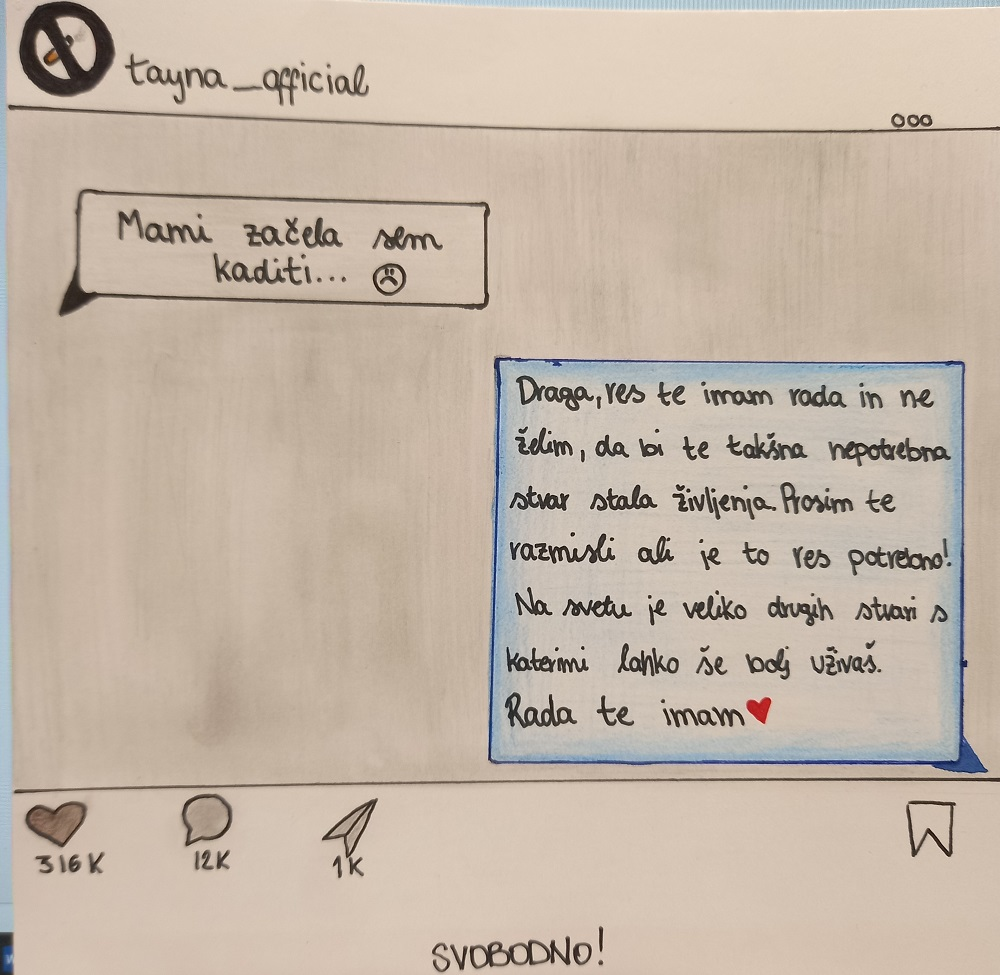 tayna_official
ooo
Mami začela sem
kaditi... ☹
Draga, res te imam rada in ne
želim, da bi te takšna nepotrebna
stvar stala življenja. Prosim te
razmisli ali je to res potrebno!
Na svetu je veliko drugih stvari s
katerimi lahko še bolj uživaš.
Rada te imam ♥
316K 12K 1K
SVOBODNO!